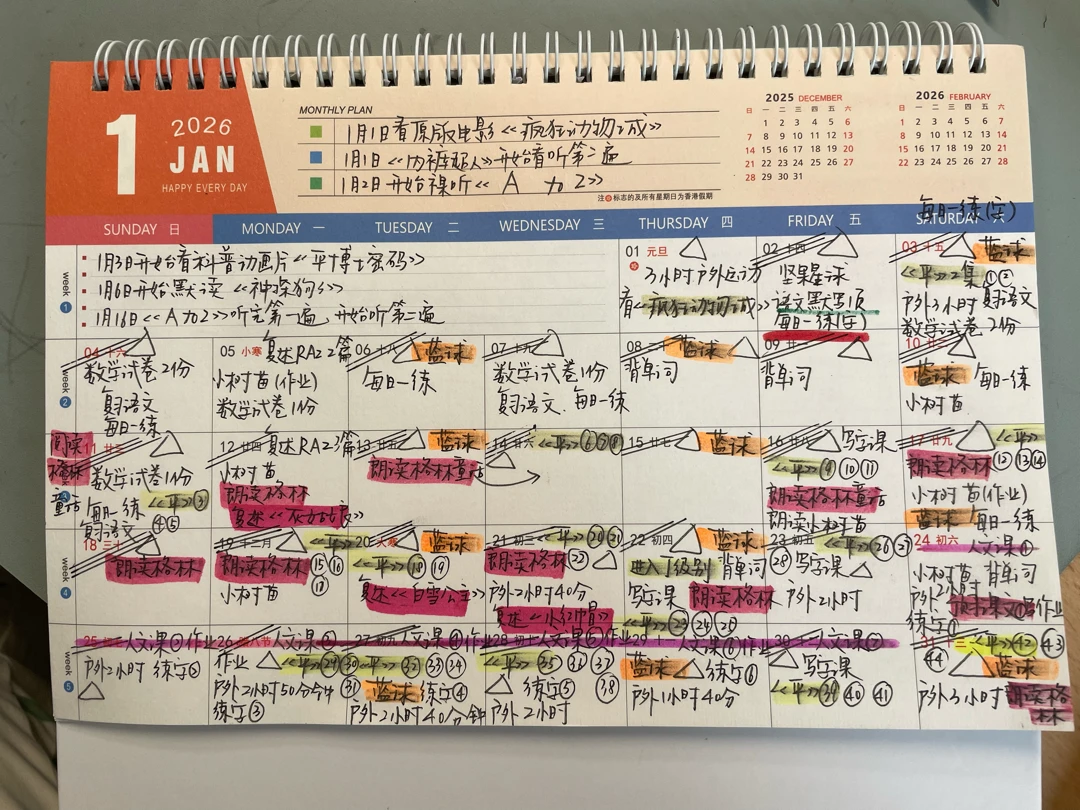 1
2026
JAN
HAPPY EVERY DAY
MONTHLY PLAN
1月1日看原版电影《疯狂动物城》
1月1日《内裤超人》开始看听第二遍
1月2日开始裸听《A to Z》
注:标志的及所有星期日为香港假期
2025 DECEMBER
日 一 二 三 四 五 六
1 2 3 4 5 6
7 8 9 10 11 12 13
14 15 16 17 18 19 20
21 22 23 24 25 26 27
28 29 30 31
2026 FEBRUARY
日 一 二 三 四 五 六
1 2 3 4 5 6 7
8 9 10 11 12 13 14
15 16 17 18 19 20 21
22 23 24 25 26 27 28
每日一练(字)
SUNDAY 日
MONDAY 一
TUESDAY 二
WEDNESDAY 三
THURSDAY 四
FRIDAY 五
SATURDAY 六
week 1
1月3日开始看科普动画片《平博士密码》
1月6日开始默读《神探狗5》
1月16日《A to Z》听完第一遍,开始听第二遍
01 元旦
3小时户外运动
看《疯狂动物城》
02 十四
坚果星球
语文默写1页
每日一练(字)
03 十五
篮球
《平》2集①②
户外3小时 复习语文
数学试卷2份
week 2
04 十六
数学试卷2份
复习语文
每日一练
05 小寒
复述RAZ 2篇
小树苗(作业)
数学试卷1份
06 十八
篮球
每日一练
07 十九
数学试卷1份
复习语文、每日一练
08 二十
篮球
背单词
09 廿一
背单词
10 廿二
篮球 每日一练
小树苗
阅读格林童话
11 廿三
数学试卷1份
每日一练《平》③
复习语文④⑤
12 廿四
复述RAZ 3篇
小树苗
朗读格林
复述《灰姑娘》
13 廿五
篮球
朗读格林童话
14 廿六
《平》⑥⑦⑧
15 廿七
篮球
16 廿八
写字课
《平》⑨⑩⑪
朗读格林童话
朗读小树苗
17 廿九
《平》
朗读格林⑫⑬⑭
小树苗(作业)
篮球 每日一练
week 4
18 三十
朗读格林
19 十二月
《平》
朗读格林⑮⑯
小树苗⑰
20 大寒
篮球
《平》⑱⑲
复述《白雪公主》
21 初三
《平》⑳㉑
朗读格林㉒
户外2小时40分
复述《小红帽》
22 初四
篮球
进入J级别 背单词
写字课 朗读格林
《平》㉓㉔㉕
23 初五
《平》㉖㉗
㉘写字课
户外2小时
24 初六
人文课①
小树苗 背单词
户外2小时
练字①
week 5
25 初七
人文课②作业
户外2小时 练字②
26 腊八节
人文课③
作业
《平》㉙㉚
户外2小时50分钟㉛
练字③
27 初九
人文课④作业
《平》㉜㉝㉞
篮球 练字④
户外2小时40分钟
28 初十
人文课⑤作业
《平》㉟㊱㊲
练字⑤㊳
户外2小时
29 十一
人文课⑥作业
篮球 练字⑥
户外1小时40分
30 十二
人文课⑦
写字课
《平》㊴㊵㊶
31 十三
《平》㊷㊸
㊹
篮球
户外3小时 朗读格林